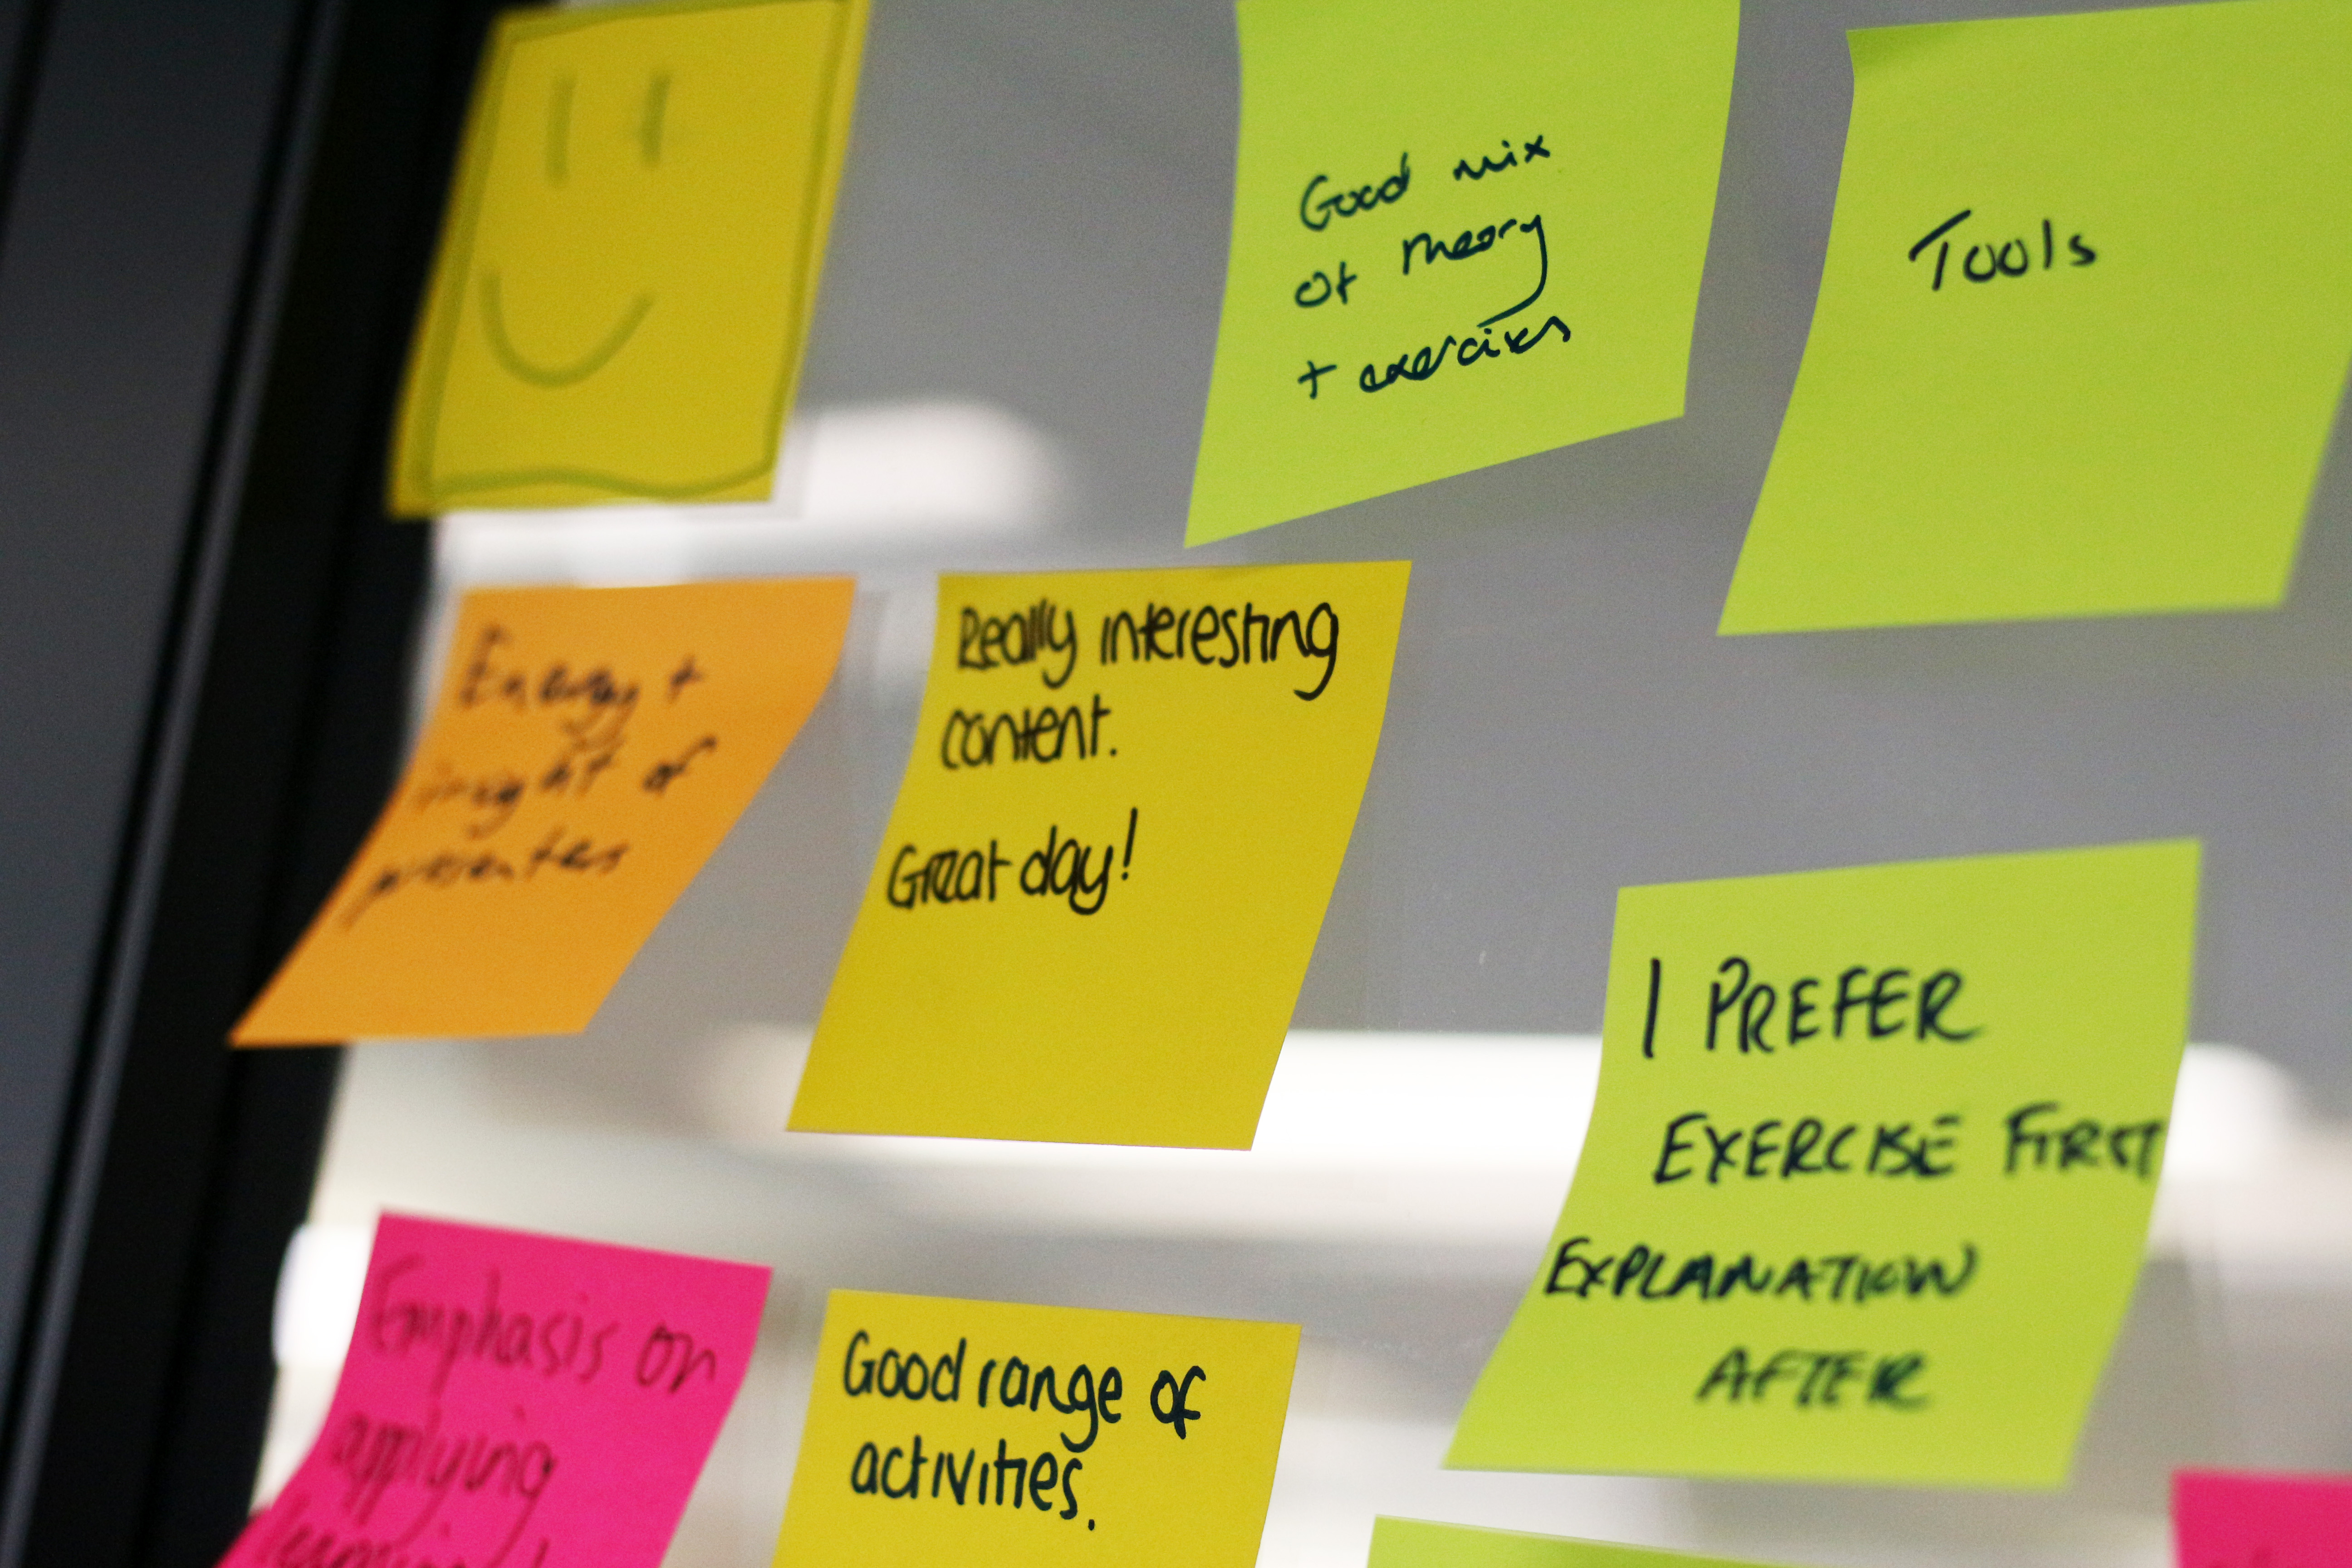 Good mix
of theory
+ exercises
Tools
Energy +
insight of
presenters
Really interesting
content.
Great day!
I PREFER
EXERCISE FIRST
EXPLANATION
AFTER
Emphasis on
applying
Good range of
activities.